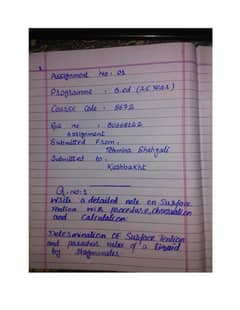 Assignment No: 01
Programme : B.ed (2.5 Year)
Course Code : 8672
assignment
Submitted From:
Submitted to :
Q. no: 1
Write a detailed note on Surface
Tention with procedure, observation
and Calculation:
Determination of Surface Tention
and parachor value of a liquid
by Stagmometer